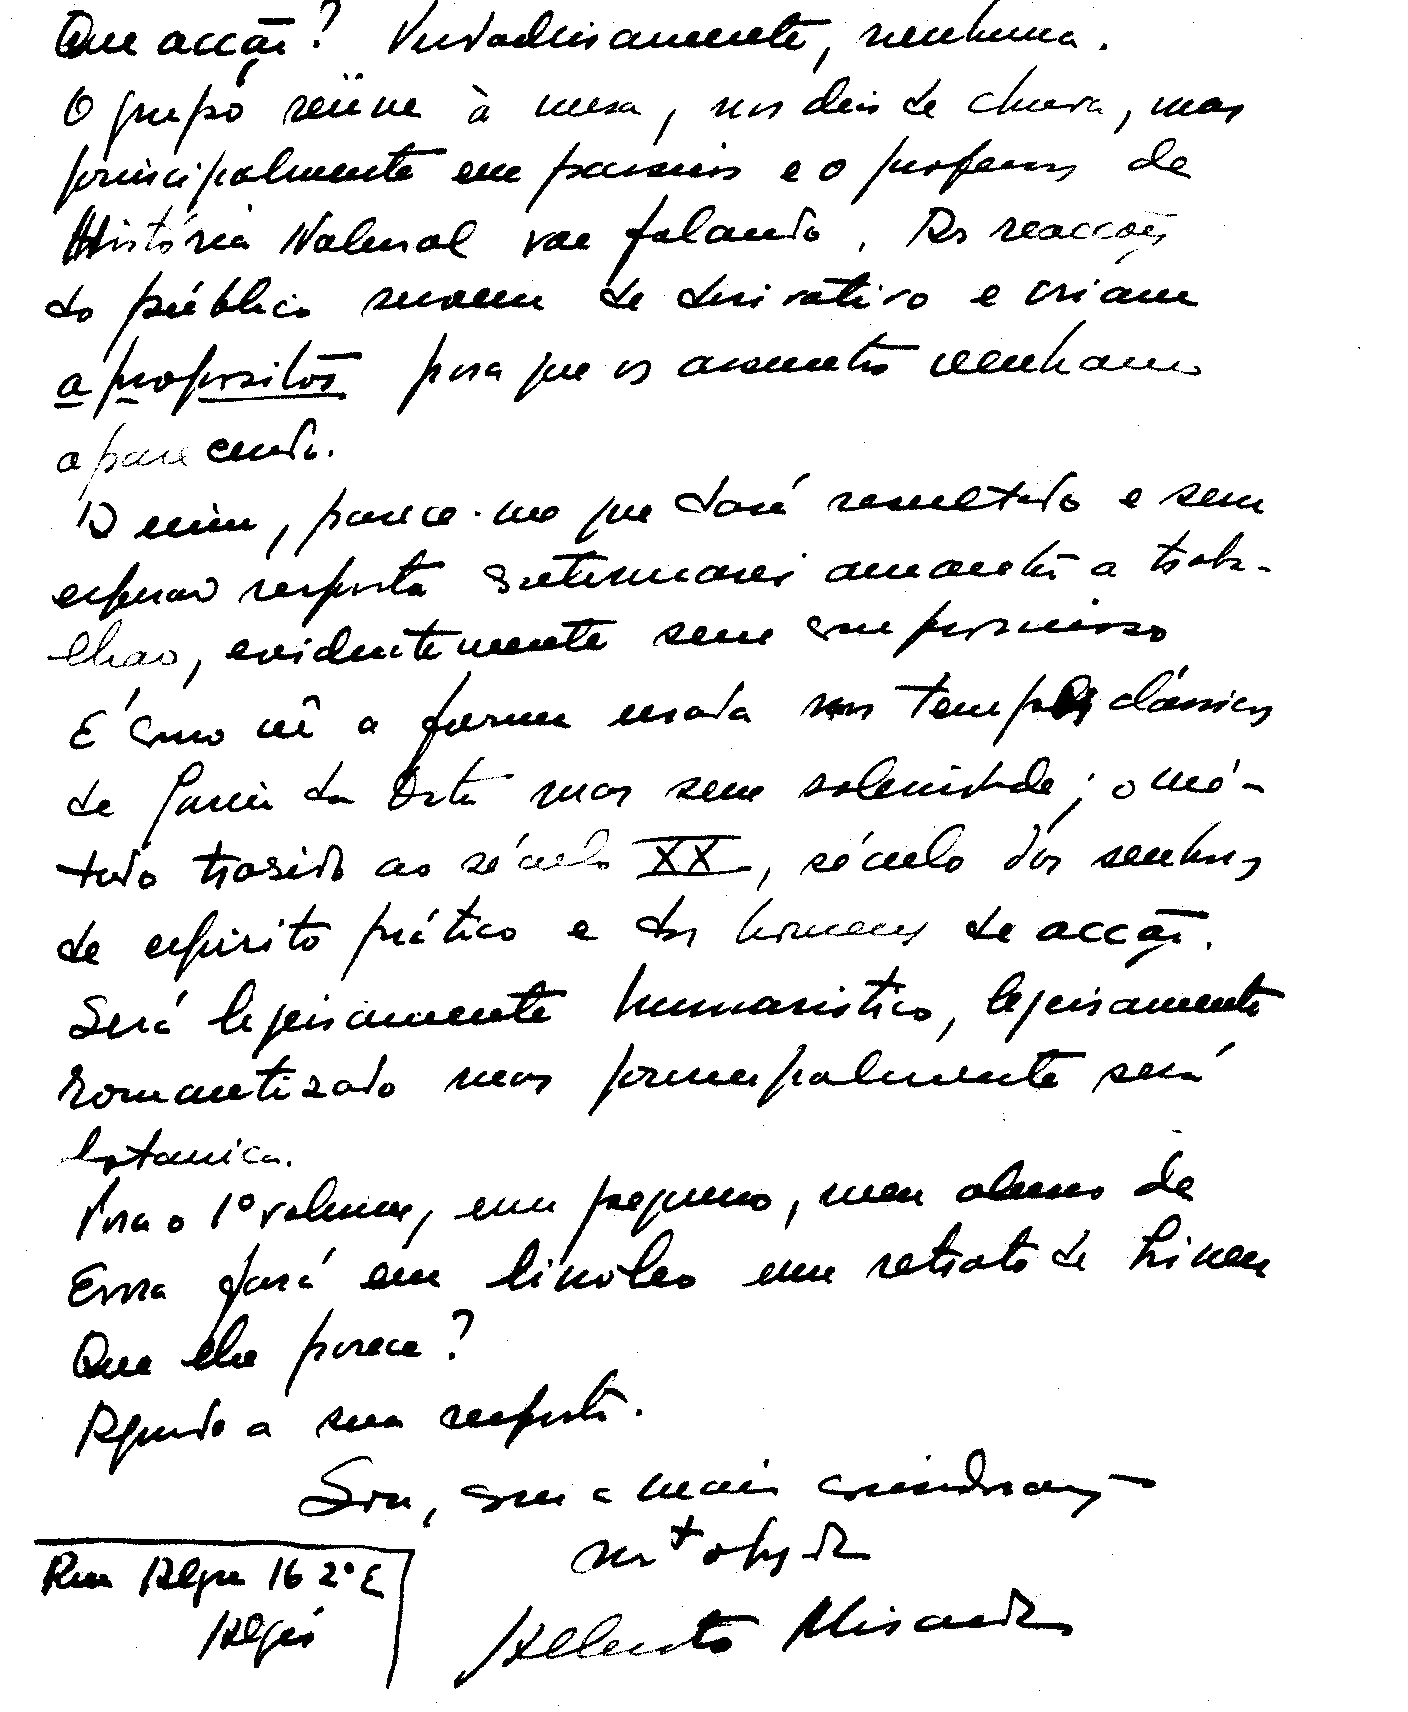 Que acção? Verdadeiramente, nenhuma.
O grupo reüne à mesa, nos dias de chuva, mas
principalmente em passeios e o professor de
História Natural vae falando. As reacções
do público servem de derivativo e criam
a propósitos para que os assuntos venham
aparecendo.
A mim, parece-me que dará resultado e sem
esperar resposta continuarei amanhã a traba-
lhar, evidentemente sem compromisso
É como vê a forma usada nos tempos clássicos
de Garcia da Orta mas sem solenidade; o mé-
todo trazido ao século XX, século dos senhores
de espírito prático e dos homens de acção.
Será ligeiramente humanístico, ligeiramente
romantizado mas principalmente será
botanica.
Para o 1º volume, em pequeno, meu aluno de
Evora fará em linoleo um retrato de Lineu
Que lhe parece?
Aguardo a sua resposta.
Sou, com a mais consideração
mt
Rua 16 2º E
Algés